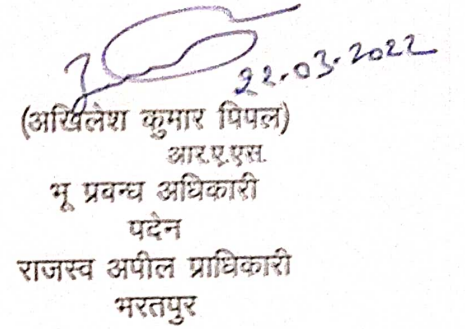 22.03.2022
(अखिलेश कुमार पिपल)
आर.ए.एस.
भू प्रवन्ध अधिकारी
पदेन
राजस्व अपील प्राधिकारी
भरतपुर